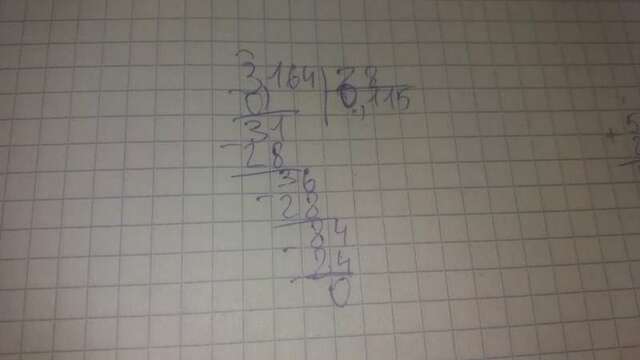 3164 28
0 0,115
31
- 28
36
- 28
84
- 24
0
+ 5